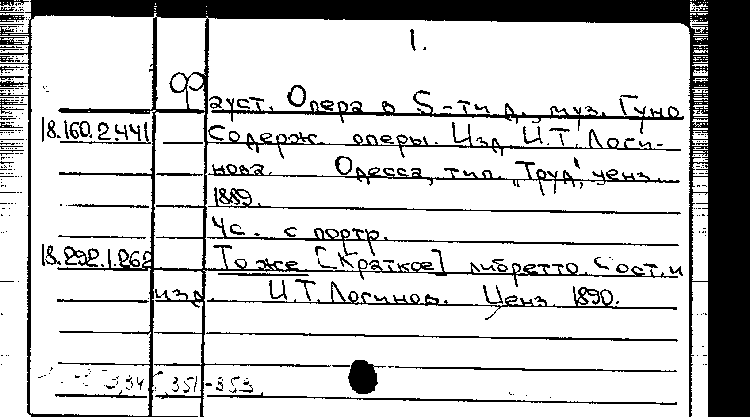 1.
Фауст. Опера в 5-ти д., муз. Гуно
18.160.2.441 Содерж. оперы. Изд. И.Т. Логи-
нова. Одесса, тип. "Труд", ценз.
1889.
4с. с портр.
18.292.1.262 То же [Краткое] либретто. Сост. и
изд. И.Т. Логинов. Ценз. 1890.
351-353